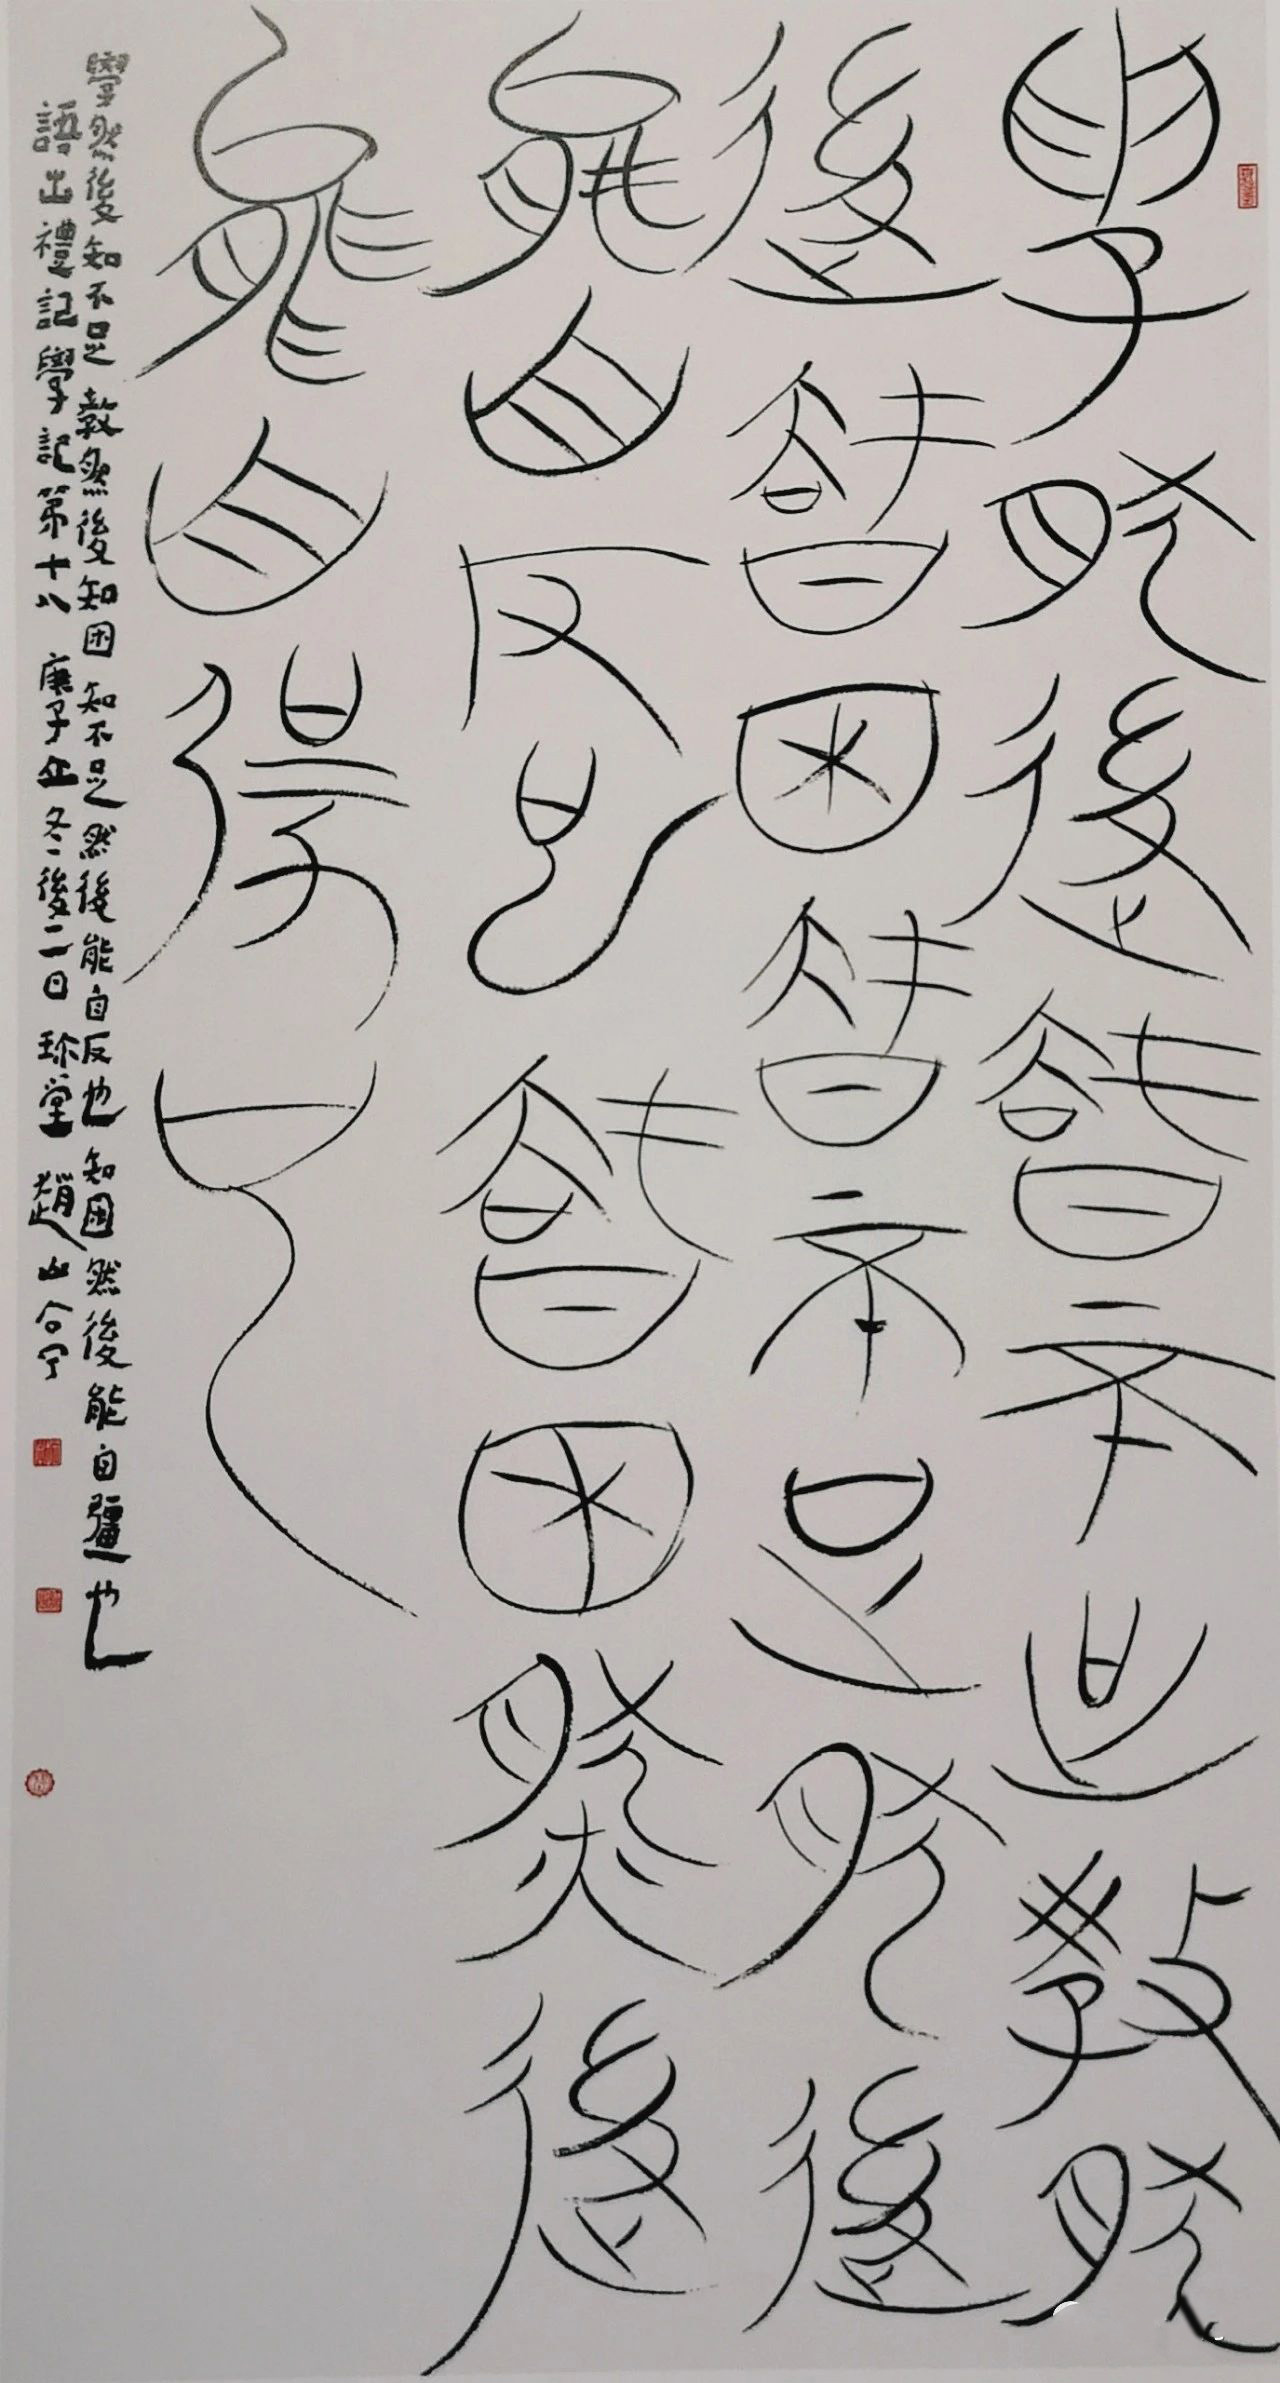 學然後知不足教然
後知困知不足然後
能自反也知困然後
能自彊也
學然後知不足 教然後知困 知不足然後能自反也 知困然後能自彊也
語出禮記學記第十八 庚子立冬後二日 珎堂 趙山